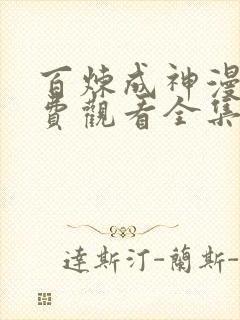 百炼成神漫
费觀看全集
達斯汀-蘭斯-